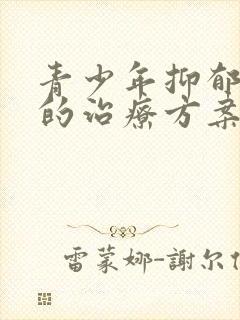 青少年抑郁
的治療方案
雷蒙娜-謝尔